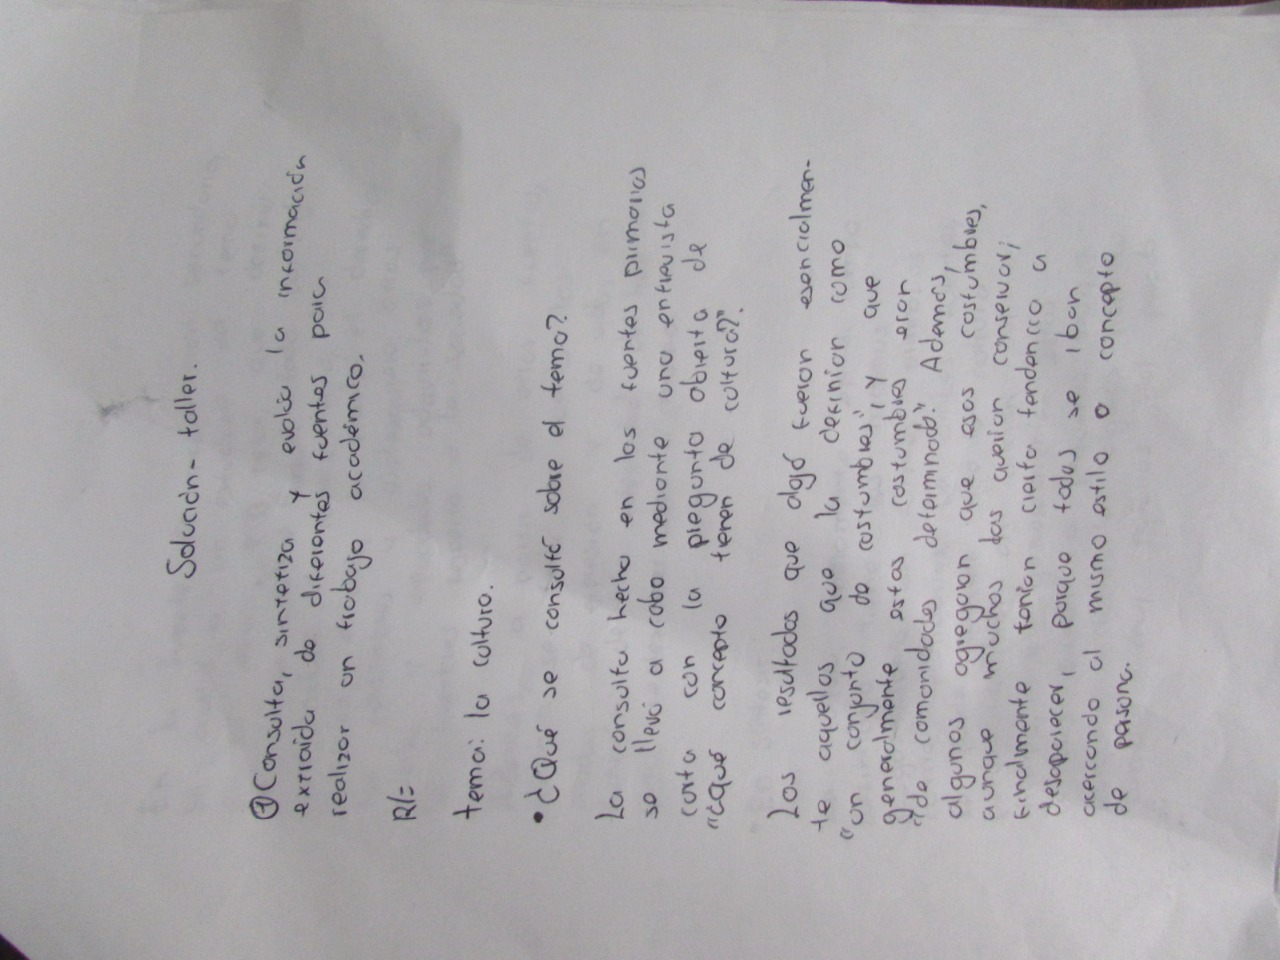 Solución - taller.
① Consulta, sintetiza y evalúa la información
extraída de diferentes fuentes para
realizar un trabajo académico.
R/=
tema: la cultura.
• ¿Qué se consultó sobre el tema?
La consulta hecha en las fuentes primarias
se llevó a cabo mediante una entrevista
corta con la pregunta abierta de
"¿qué concepto tienen de cultura?".
Los resultados que algó fueron esencialmen-
te aquellos que la definían como
"un conjunto de costumbres", y que
generalmente estas costumbres eran
"de comunidades determinado." Además,
algunos agregaron que esas costumbres,
aunque muchos las querían conservar,
finalmente tenían cierta tendencia a
desaparecer, porque todas se iban
acercando al mismo estilo o concepto
de persona.